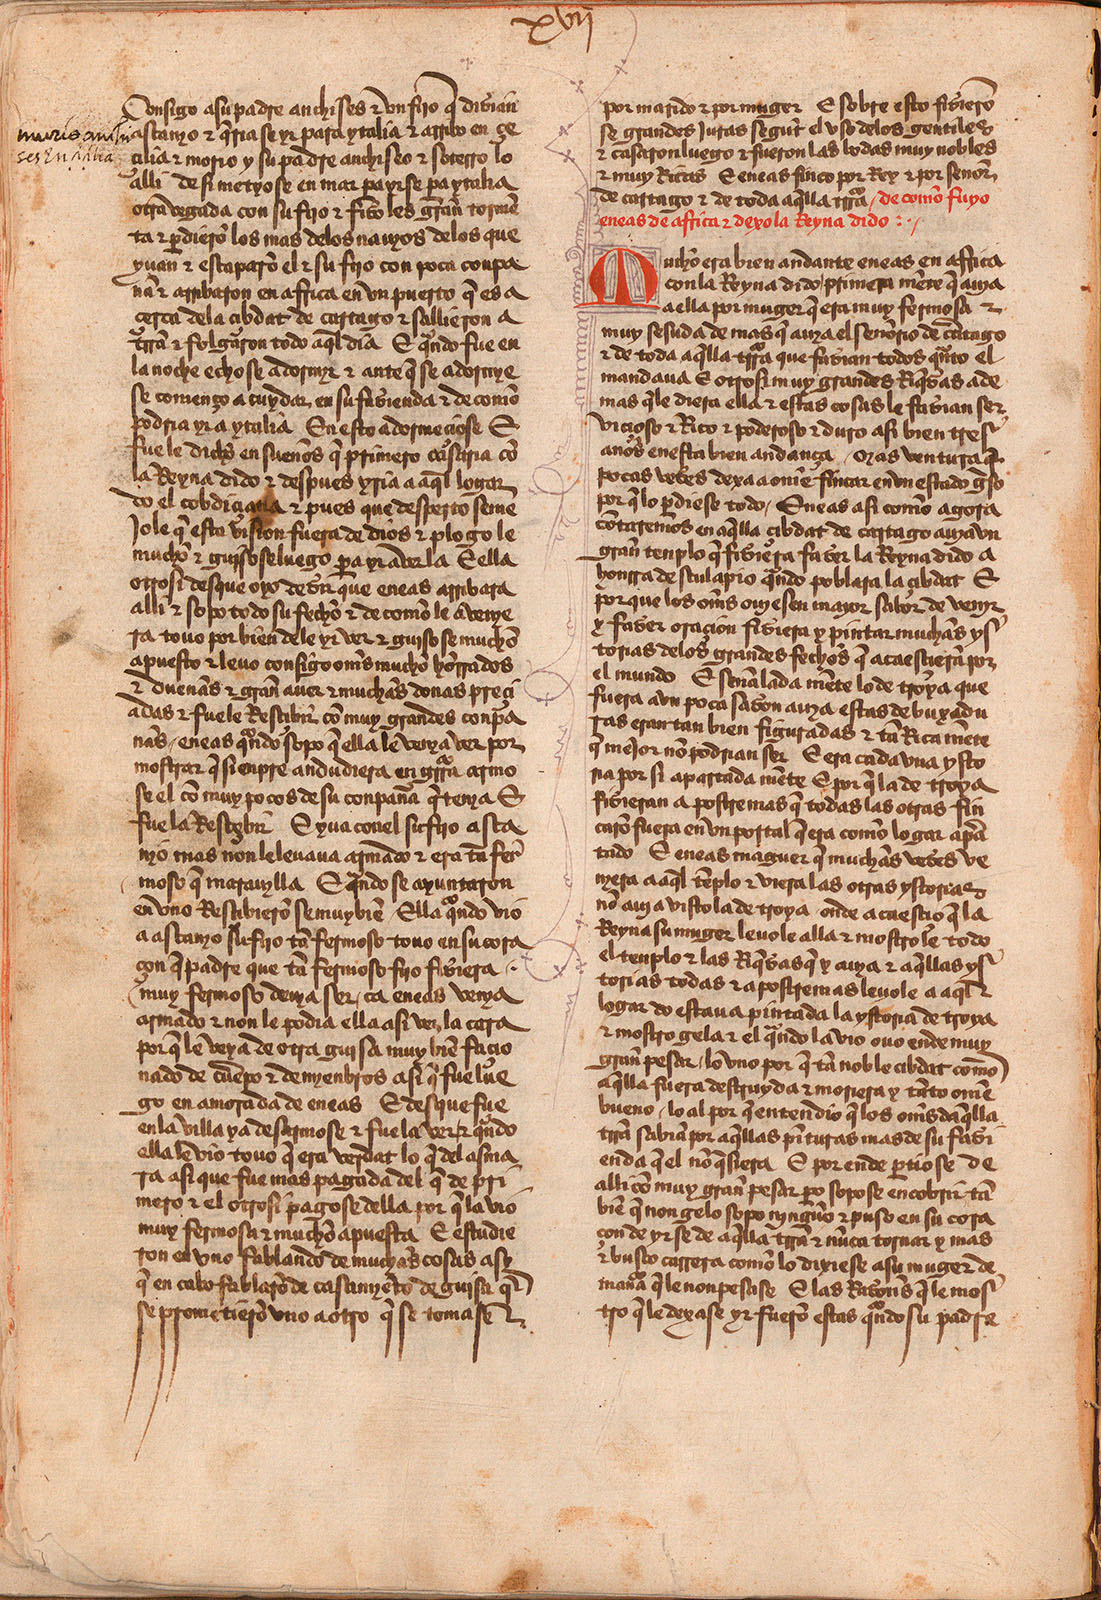 xvij
Consigo a su padre anchises & vn fijo q̃ dizian
ascanyo & q̃ria se yr para ytalia & arribo en çe
çilia & morio y su padre anchises & soterro lo
alli de si metyose en mar pa yrse pa ytalia
otra vegada con su fijo & fizo les grañ tormẽ
ta & p̃dierõ los mas delos nauyos de los que
yuan & escaparõ el & su fijo con poca conpa
ña & arribaron en africa en vn puerto q̃ es a
çerca dela cibdat de cartago & sallieron a
trr̃a & folgaron todo aq̃l dia E q̃ndo fue en
la noche echose a dormyr & ante q̃ se adormye
se començo a cuydar en su fazienda & de comõ
podria yr a ytalia En esto adormeçiose E
fue le dicho en sueños q̃ primero casaria cõ
la Reyna dido & despues yria a aq̃l logar
do el cobdiçiaua & pues que desperto seme
jole q̃ esta vision fuera de dios & plogo le
mucho & guisose luego pa yr a ver la E ella
otrosi desque oyo dezir que eneas arribara
alli & sopo todo su fecho & de comõ le avenye
ra touo por bien dele yr ver & guisso se mucho
apuesto & leuo consigo om̃s mucho hõrrados
& dueñas & grañ auer & muchas donas preçi
adas & fuele Resçibir cõ muy grandes conpa
ñas eneas q̃ndo sopo q̃ ella le venya ver por
mostrar q̃ sienpre andudiera en grr̃a armo
se el cõ muy pocos de su conpaña q̃ tenya E
fue la Resçebir E yua con el su fijo asca
nyo mas non le leuaua armado & era tã fer
moso q̃ marauylla E q̃ndo se ayuntaron
en vno Resçibierõ se muy biẽ Ella q̃ndo vio
a ascanyo su fijo tã fermoso touo en su cora
çon q̃ padre que tã fermoso fijo fiziera
muy fermoso deuya ser ca eneas venya
armado & non le podia ella asi ver la cara
por q̃ le veya de otra guisa muy biẽ façio
nado de cuẽpo & de myenbros asi q̃ fue lue
go en amorada de eneas E desque fue
en la villa ya desarmose & fue la ver & q̃ndo
ella le vio touo q̃ era verdat lo q̃ del asma
ra asi que fue mas pagada del q̃ de pri
mero & el otrosi pagose della por q̃ la vio
muy fermosa & mucho apuesta E estudie
ron en vno fablando de muchas cosas asy
q̃ en cabo fablarõ de casamyẽto de guisa q̃
se prometierõ vno a otro q̃ se tomasẽ
por marido & por muger E sobre esto fizierõ
se grandes juras segũt el vso delos gentiles
& casaron luego & fueron las bodas muy nobles
& muy Ricas E eneas finco por Rey & por señor
de cartago & de toda aq̃lla trr̃a de comõ fuyo
eneas de africa & dexo la Reyna dido
Mucho era bien andante eneas en africa
con la Reyna dido primera mẽte q̃ auya
a ella por muger q̃ era muy fermosa &
muy sesuda de mas q̃ auya el señorio de cartago
& de toda aq̃lla trr̃a que fazian todos q̃nto el
mandaua E otrosi muy grandes Riq̃zas a de
mas q̃ le diera ella & estas cosas le fazian ser
viçioso & Rico & poderoso & duro asi bien tres
años en esta bien andança mas ventura q̃
pocas vezes dexa a omẽ fincar en vn estado q̃so
por q̃ lo p̃diese todo Eneas asi comõ agora
cõtaremos en aq̃lla cibdat de cartago auya vn
grañ tenplo q̃ fiziera fazer la Reyna dido a
honrra de sculapio q̃ndo poblara la cibdat E
por que los om̃s ouyesen mayor sabor de venyr
y fazer oraçion fiziera y pintar muchas ys
torias delos grandes fechos q̃ acaesçierã por
el mundo E señalada mẽte lo de troya que
fuera avn poca sazon auya estas de buxadu
ras eran tan bien figuradas & tã Rica mẽte
q̃ mejor nõ podrian ser E era cada vna ysto
ria por si apartada mẽte E por q̃ la de troya
fizieran a postremas q̃ todas las otras fin
carõ fuera en vn portal q̃ era comõ logar apar
tado E eneas maguer q̃ muchas vezes ve
nyera a aq̃l tẽplo & viera las otras ystorias
nõ auya visto la de troya onde acaesçio q̃ la
Reyna su muger leuole alla & mostrole todo
el tenplo & las Riq̃zas q̃ y auya & aq̃llas ys
torias todas & a postremas leuole a aq̃l
logar do estaua pintada la ystoria de troya
& mostro gela & el q̃ndo la vio ouo ende muy
grañ pesar lo vno por q̃ tã noble cibdat comõ
aq̃lla fuera destruyda & moriera y tãto omẽ
bueno lo al por q̃ entendio q̃ los om̃s daq̃lla
trr̃a sabiã por aq̃llas pĩturas mas de su fazi
enda q̃ el nõ q̃siera E por ende p̃tiose de
alli cõ muy grañ pesar po sopose encobrir tã
biẽ q̃ non gelo sopo nynguno & puso en su cora
çon de yr se de aq̃lla trr̃a & nũca tornar y mas
& busco carrera comõ lo dixiese a su muger de
maña q̃ le non pesase E las Razoñs q̃ le mos
tro q̃ le dexase yr fuerõ estas q̃ndo su padre